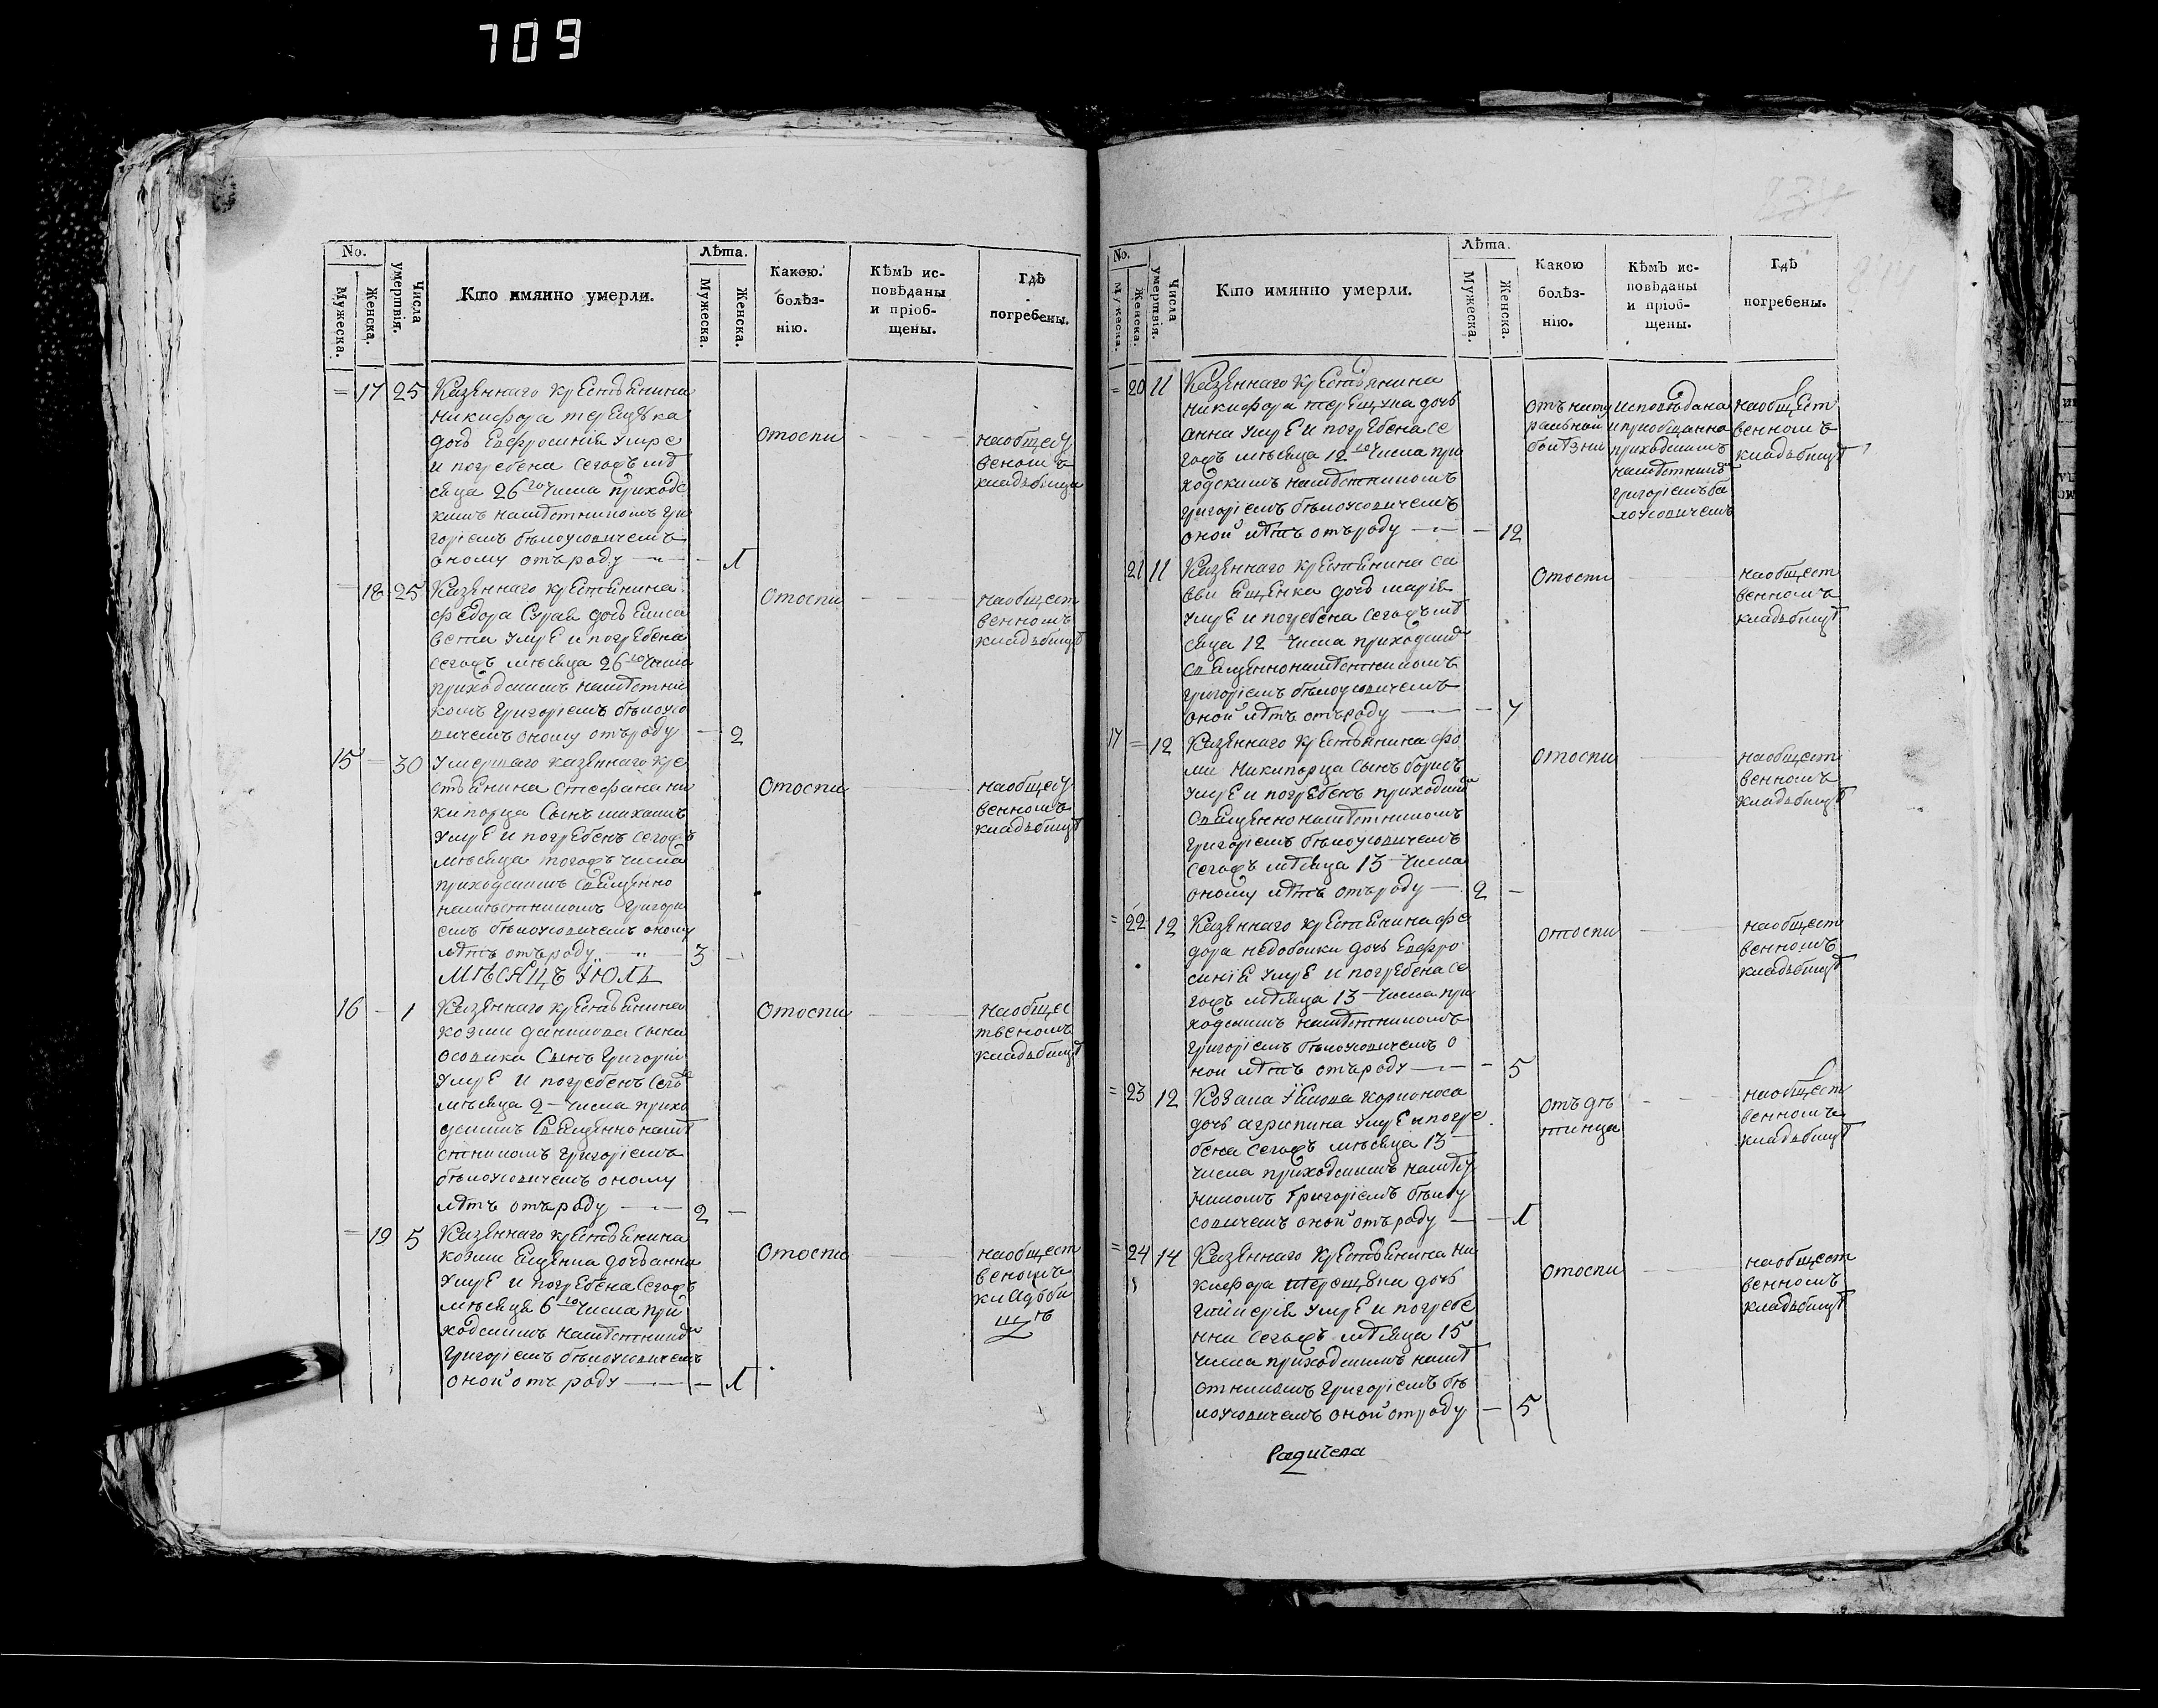 709
No. Числа умертвія. Кто имянно умерли. Лѣта. Какою болѣзнію. Кѣмъ исповѣданы и пріобщены. Гдѣ погребены.
Мужеска. Женска. Мужеска. Женска.
= 17 25 Казеннаго крестьянина
Никифора терещука
дочь Евфросинія умре
и погребена сегожъ мѣ
сяца 26го числа приходс
кимъ намѣстникомъ Гри
горіемъ бѣлоусовичемъ
оному отъ роду — 1
отоспи
наобщест
веномъ
кладьбище
= 18 25 Казеннаго крестьянина
Федора дочь Елиса
вета умре и погребена
сегожъ мѣсяца 26го числа
приходскимъ намѣстни
комъ Григоріемъ бѣлоусо
вичемъ оному отъ роду — 2
отоспи
наобщест
венномъ
кладьбищѣ
15 — 30 Умершаго казеннаго кре
стьянина Стефана ни
кипорца сынъ михаилъ
умре и погребенъ сегожъ
мѣсяца тогожъ числа
приходскимъ священно
намѣстникомъ Григори
емъ бѣлоусовичемъ оному
лѣтъ отъ роду — 3 —
отоспи
наобщест
венномъ
кладьбищѣ
МѢСЯЦЪ ІЮЛЬ
16 — 1 Казеннаго крестьянина
козми данилова сына
осовика сынъ Григорій
умре и погребенъ сегожъ
мѣсяца 2 числа прихо
дскимъ священно намѣ
стникомъ Григоріемъ
бѣлоусовичемъ оному
лѣтъ отъ роду — 2 —
отоспи
наобщес
твеномъ
кладьбищѣ
= 19 5 Казеннаго крестьянина
козми ещенка дочь анна
умре и погребена сегожъ
мѣсяца 6го числа при
ходскимъ намѣстникомъ
Григоріемъ бѣлоусовичемъ
оной отъ роду — 1
отоспи
наобщест
веномъ
кладьби
щѣ
No. Числа умертвія. Кто имянно умерли. Лѣта. Какою болѣзнію. Кѣмъ исповѣданы и пріобщены. Гдѣ погребены.
Мужеска. Женска. Мужеска. Женска.
= 20 11 Казеннаго крестьянина
никифора терещука дочь
анна умре и погребена се
гожъ мѣсяца 12го числа при
ходскимъ намѣстникомъ
григоріемъ бѣлоусовичемъ
оной лѣтъ отъ роду — 12
отъ нату
ральной
болѣзни
исповѣдана
и приобщенна
приходскимъ
намѣстник
григоріемъ бѣ
лоусовичемъ
наобщест
венномъ
кладьбищѣ
21 11 Казеннаго крестьянина са
вви ещенка дочь марія
умре и погребена сегожъ мѣ
сяца 12 числа приходским
священнонамѣстникомъ
григоріемъ бѣлоусовичемъ
оной лѣтъ отъ роду — 7
отоспи
наобщест
венномъ
кладьбищѣ
17 = 12 Казеннаго крестьянина фо
ми никипорца сынъ борисъ
умре и погребенъ приходским
священнонамѣстникомъ
григоріемъ бѣлоусовичемъ
сегожъ мѣсяца 13 числа
оному лѣтъ отъ роду — 2 —
отоспи
наобщест
венномъ
кладьбищѣ
= 22 12 Казеннаго крестьянина фе
дора недобойки дочь Евфро
синіе умре и погребена се
гожъ мѣсяца 13 числа при
ходскимъ намѣстникомъ
григоріемъ бѣлоусовичемъ о
ной лѣтъ отъ роду — 5
отоспи
наобщест
венномъ
кладьбищѣ
= 23 12 Козака
дочь агрипина умре и погре
бена сегожъ мѣсяца 13
числа приходскимъ намѣст
никомъ Григоріемъ бѣлоу
совичемъ оной отъ роду — 1
отъ дѣ
тинца
наобщест
венномъ
кладьбищѣ
= 24 14 Казеннаго крестьянина ни
кифора терещенки дочь
гликерія умре и погребе
нна сегожъ мѣсяца 15
числа приходскимъ намѣ
стникомъ григоріемъ бѣ
лоусовичемъ оной от роду — 5
отоспи
наобщест
венномъ
кладьбищѣ